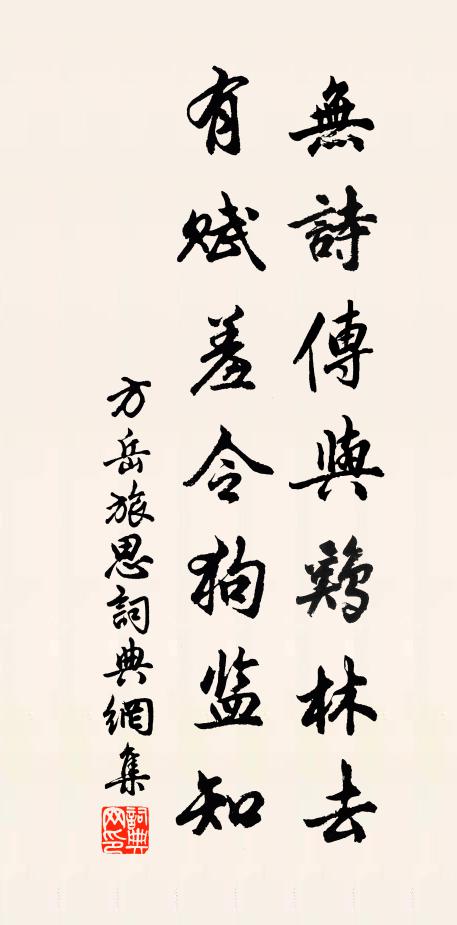 無詩傳與鷄林去
有賦羞令狗監知
方岳旅思詞典網集
詞典网印